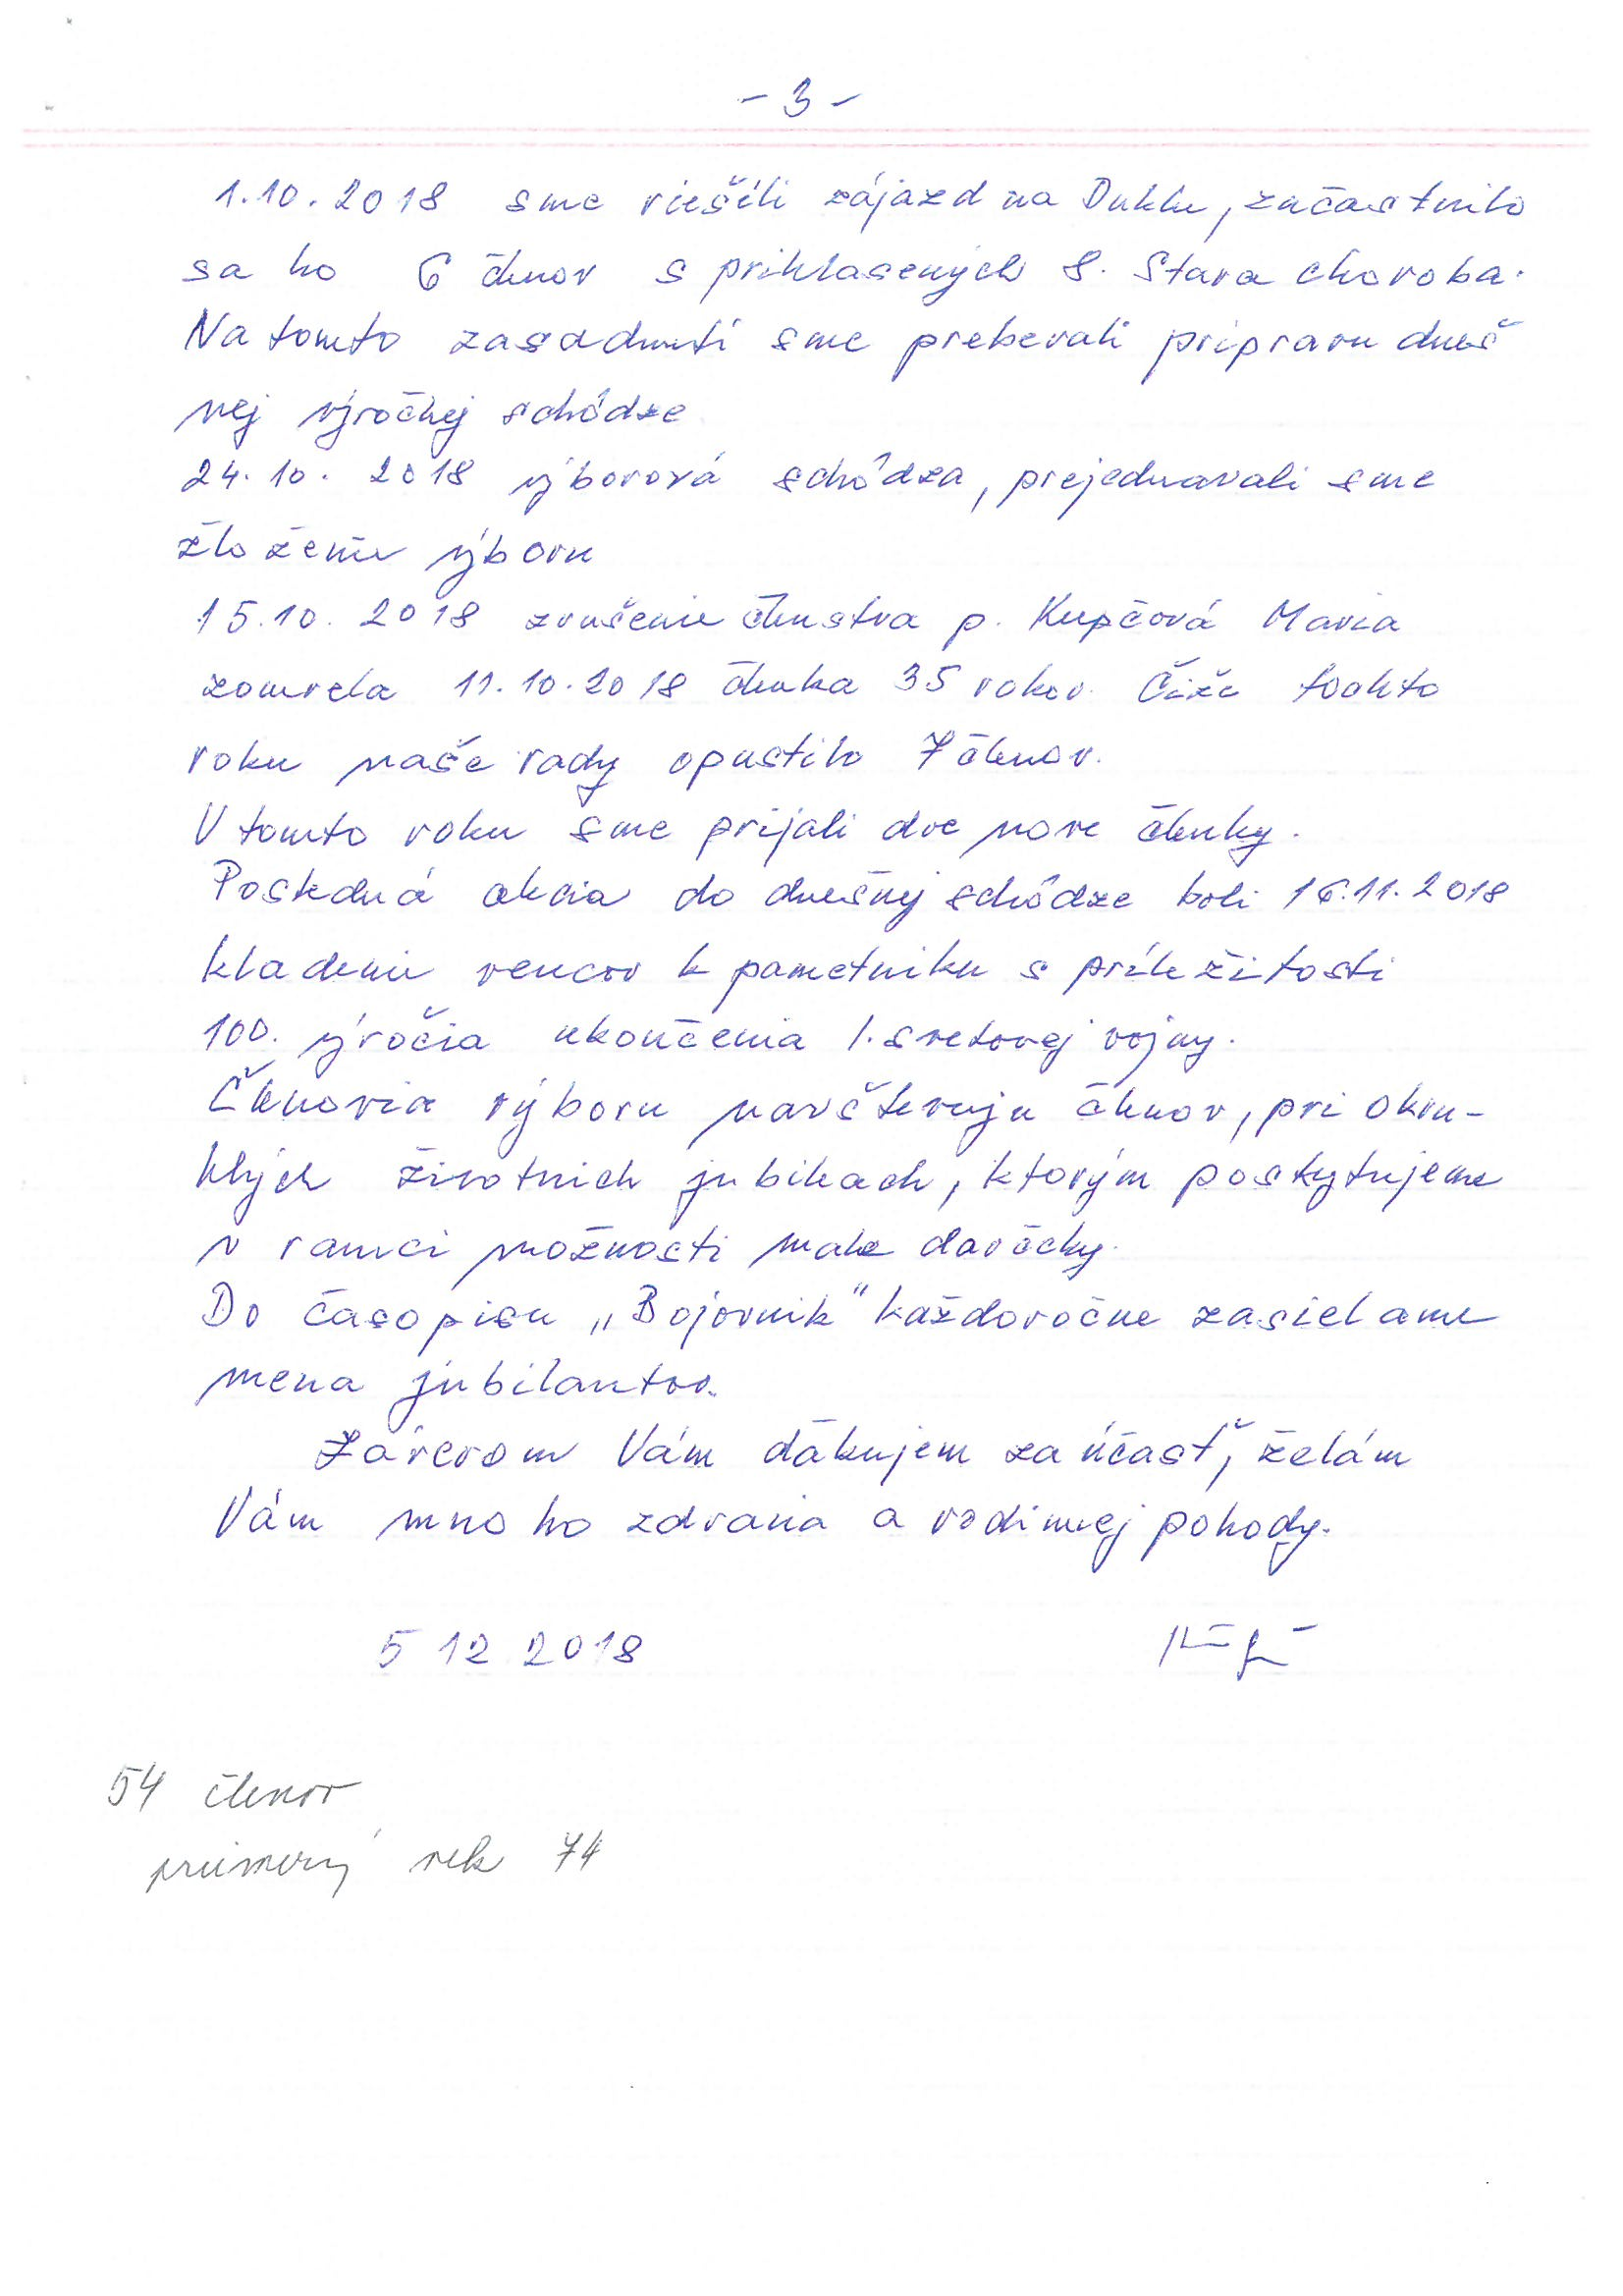 - 3 -
1.10.2018 sme riešili zájazd na Duklu, zučastnilo
sa ho 6 členov s prihlasených 8. Stara choroba.
Na tomto zasadnutí sme preberali pripravu dneš
nej výročnej schôdze
24.10. 2018 výborová schôdza, prejednavali sme
zloženie výboru
15.10. 2018 zrušenie členstva p. Kupčová Maria
zomrela 11.10.2018 členka 35 rokov. Čiže tohto
roku naše rady opustilo 7 členov.
V tomto roku sme prijali dve nove členky.
Posledná akcia do dnešnej schôdze boli 16.11.2018
kladenie vencov k pametniku s príležitosti
100. výročia ukončenia 1. svetovej vojny.
Členovia výboru navštevuju členov, pri okru-
hlých životnich jubileach, ktorým poskytujeme
v ramci možnosti male darčeky.
Do časopisu „Bojovnik" každoročne zasielame
mena jubilantov.
Záverom Vám ďakujem za účasť, želám
Vám mnoho zdravia a rodinnej pohody.
5 12 2018
54 členov
priemerný vek 74